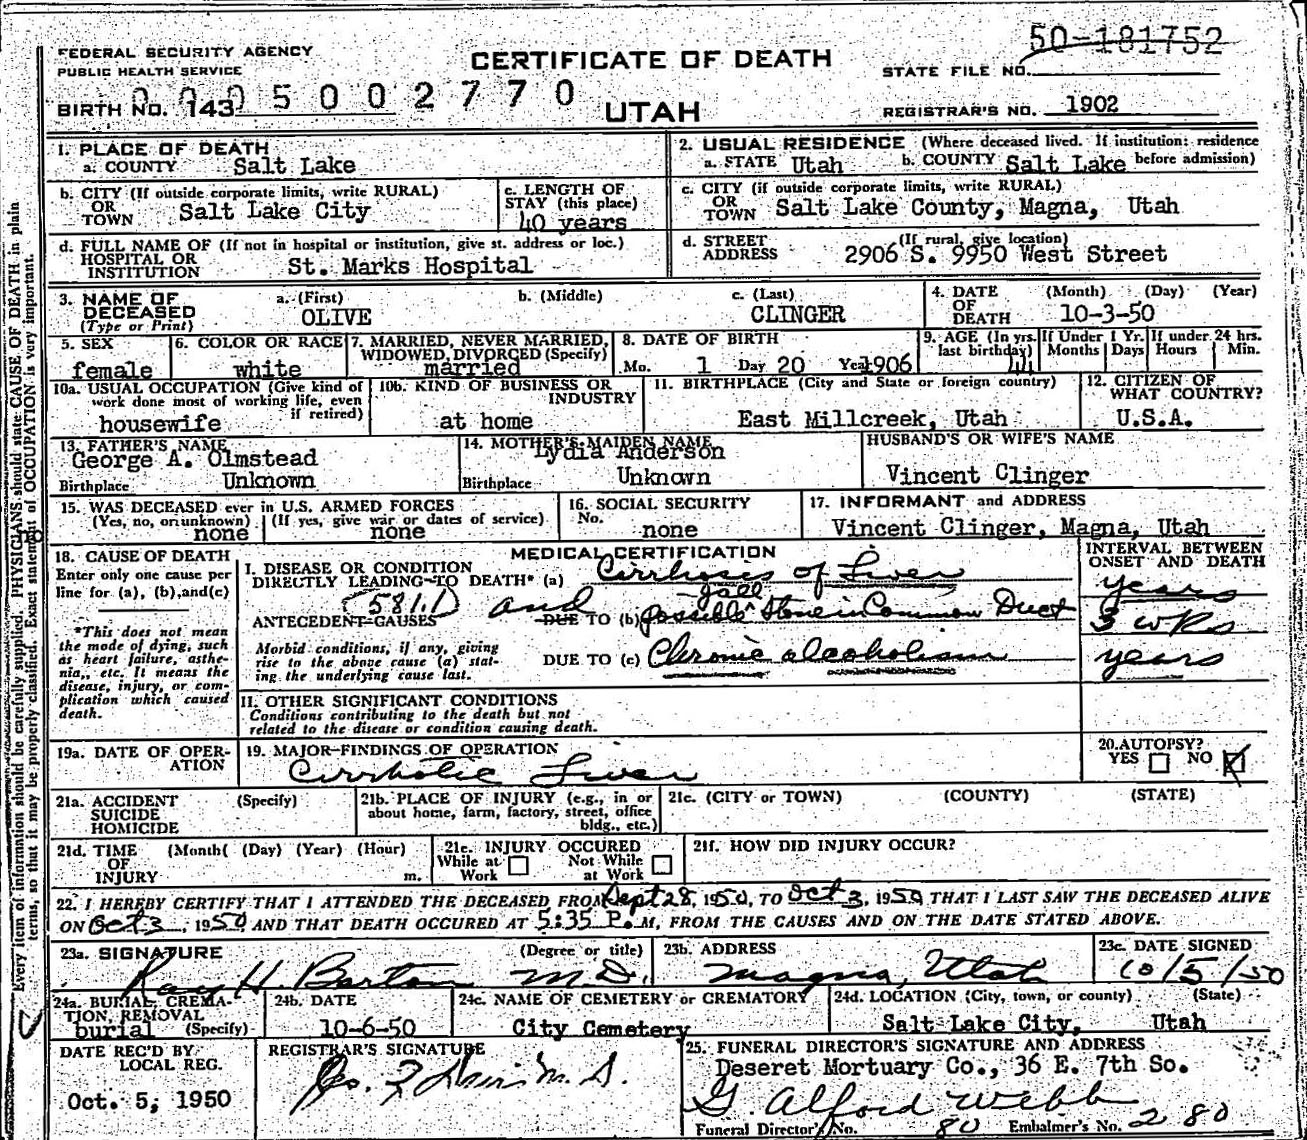 FEDERAL SECURITY AGENCY
PUBLIC HEALTH SERVICE
CERTIFICATE OF DEATH
UTAH
50-181752
STATE FILE NO.
BIRTH NO. 143
0005002770
REGISTRAR'S NO. 1902
1. PLACE OF DEATH
a. COUNTY Salt Lake
2. USUAL RESIDENCE (Where deceased lived. If institution: residence before admission)
a. STATE Utah b. COUNTY Salt Lake
b. CITY (If outside corporate limits, write RURAL)
OR TOWN Salt Lake City
c. LENGTH OF STAY (this place)
40 years
c. CITY (if outside corporate limits, write RURAL)
OR TOWN Salt Lake County, Magna, Utah
d. FULL NAME OF (If not in hospital or institution, give st. address or loc.)
HOSPITAL OR INSTITUTION St. Marks Hospital
d. STREET ADDRESS (If rural, give location)
2906 S. 9950 West Street
3. NAME OF DECEASED (Type or Print)
a. (First) b. (Middle) c. (Last)
OLIVE CLINGER
4. DATE OF DEATH (Month) (Day) (Year)
10-3-50
5. SEX
female
6. COLOR OR RACE
white
7. MARRIED, NEVER MARRIED, WIDOWED, DIVORCED (Specify)
married
8. DATE OF BIRTH
Mo. 1 Day 20 Year 1906
9. AGE (In yrs. last birthday)
44
If Under 1 Yr. Months Days
If under 24 hrs. Hours Min.
10a. USUAL OCCUPATION (Give kind of work done most of working life, even if retired)
housewife
10b. KIND OF BUSINESS OR INDUSTRY
at home
11. BIRTHPLACE (City and State or foreign country)
East Millcreek, Utah
12. CITIZEN OF WHAT COUNTRY?
U.S.A.
13. FATHER'S NAME
George A. Olmstead
Birthplace Unknown
14. MOTHER'S MAIDEN NAME
Lydia Anderson
Birthplace Unknown
HUSBAND'S OR WIFE'S NAME
Vincent Clinger
15. WAS DECEASED ever in U.S. ARMED FORCES
(Yes, no, or unknown) (If yes, give war or dates of service)
no none none
16. SOCIAL SECURITY No.
none
17. INFORMANT and ADDRESS
Vincent Clinger, Magna, Utah
18. CAUSE OF DEATH
Enter only one cause per line for (a), (b), and (c)
*This does not mean the mode of dying, such as heart failure, asthenia, etc. It means the disease, injury, or complication which caused death.
MEDICAL CERTIFICATION
INTERVAL BETWEEN ONSET AND DEATH
I. DISEASE OR CONDITION
DIRECTLY LEADING TO DEATH* (a) Cirrhosis of Liver years
(581.1) and
ANTECEDENT CAUSES
DUE TO (b) possible gall Stone in Common Duct 3 wks
Morbid conditions, if any, giving rise to the above cause (a) stating the underlying cause last.
DUE TO (c) Chronic alcoholism years
II. OTHER SIGNIFICANT CONDITIONS
Conditions contributing to the death but not related to the disease or condition causing death.
19a. DATE OF OPERATION
19. MAJOR FINDINGS OF OPERATION
Cirrhotic Liver
20. AUTOPSY?
YES NO
21a. ACCIDENT SUICIDE HOMICIDE (Specify)
21b. PLACE OF INJURY (e.g., in or about home, farm, factory, street, office bldg., etc.)
21c. (CITY or TOWN) (COUNTY) (STATE)
21d. TIME OF INJURY (Month( (Day) (Year) (Hour) m.
21e. INJURY OCCURED
While at Work Not While at Work
21f. HOW DID INJURY OCCUR?
22. I HEREBY CERTIFY THAT I ATTENDED THE DECEASED FROM Sept 28, 1950, TO Oct 3, 1950 THAT I LAST SAW THE DECEASED ALIVE
ON Oct 3, 1950 AND THAT DEATH OCCURED AT 5:35 P.M, FROM THE CAUSES AND ON THE DATE STATED ABOVE.
23a. SIGNATURE (Degree or title)
Ray H. Barton M.D.
23b. ADDRESS
Magna, Utah
23c. DATE SIGNED
10/5/50
24a. BURIAL, CREMATION, REMOVAL (Specify)
burial
24b. DATE
10-6-50
24c. NAME OF CEMETERY or CREMATORY
City Cemetery
24d. LOCATION (City, town, or county) (State)
Salt Lake City, Utah
DATE REC'D BY LOCAL REG.
Oct. 5, 1950
REGISTRAR'S SIGNATURE
25. FUNERAL DIRECTOR'S SIGNATURE AND ADDRESS
Deseret Mortuary Co., 36 E. 7th So.
G. Alford Webb
Funeral Director's No. 80 Embalmer's No. 280
Every item of information should be carefully supplied. PHYSICIANS should state CAUSE OF DEATH in plain
terms, so that it may be properly classified. Exact statement of OCCUPATION is very important.